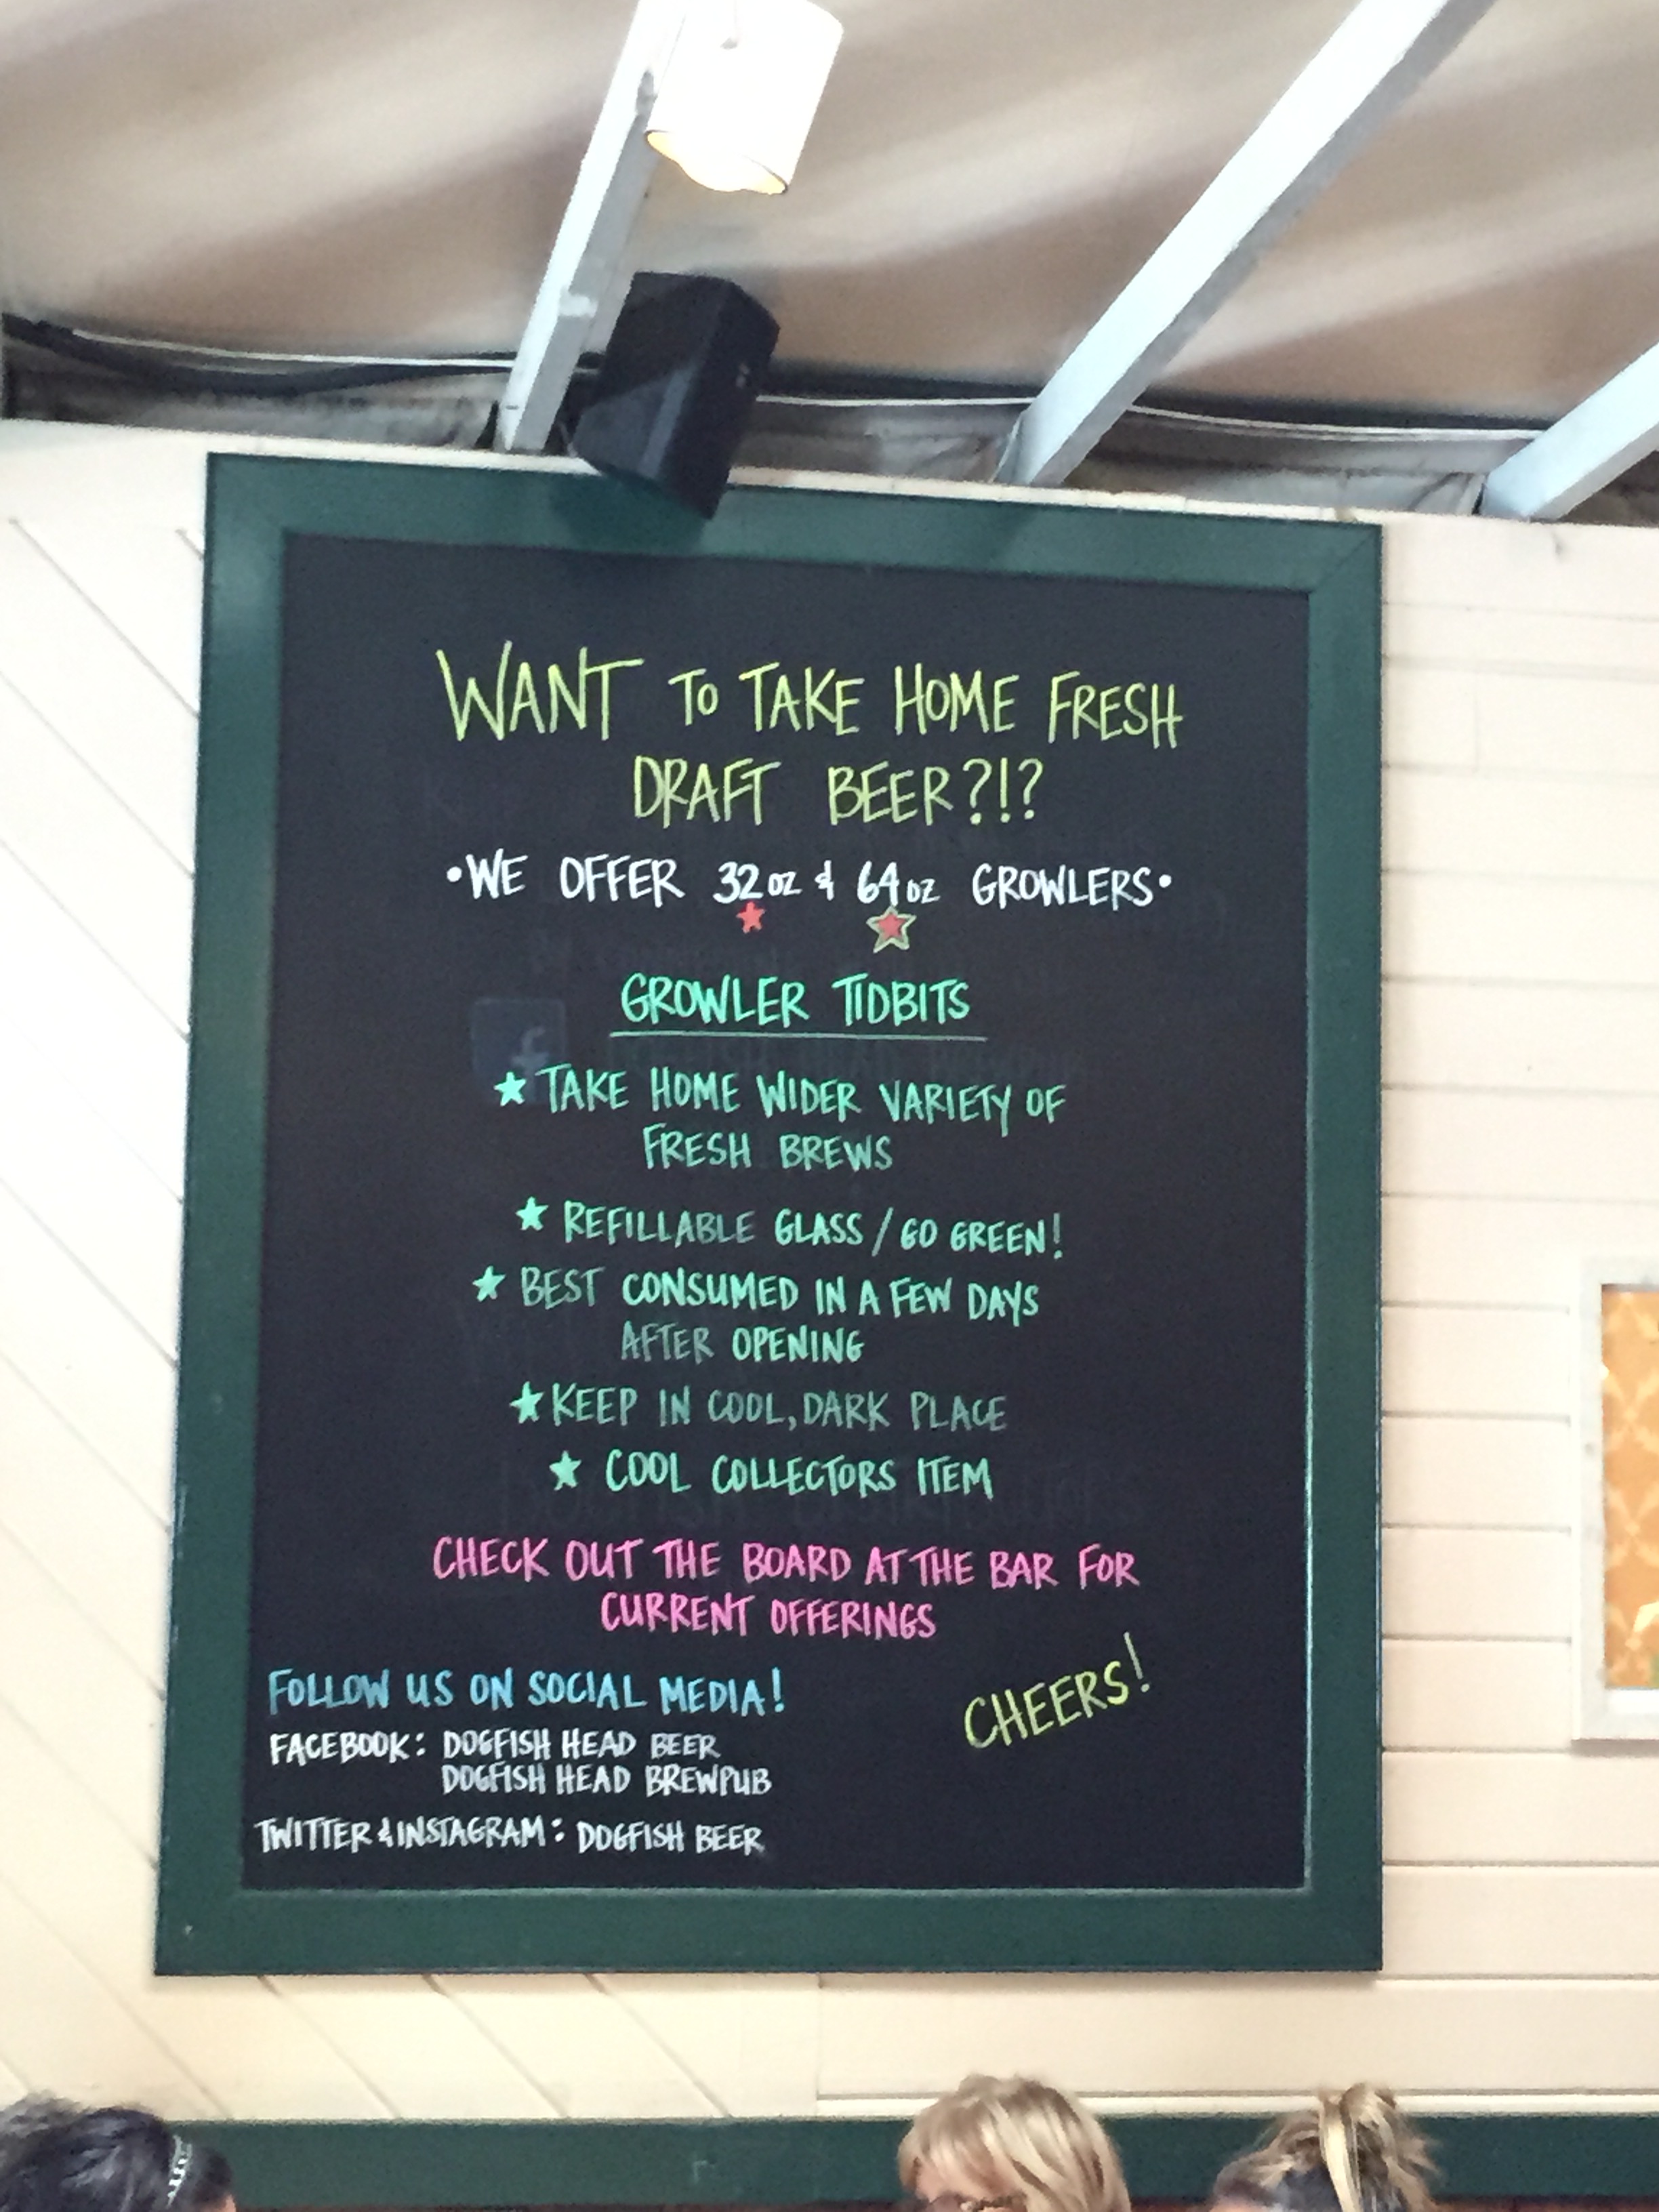 WANT TO TAKE HOME FRESH
DRAFT BEER?!?
•WE OFFER 32oz & 64oz GROWLERS•
GROWLER TIDBITS
★ TAKE HOME WIDER VARIETY OF
FRESH BREWS
★ REFILLABLE GLASS / GO GREEN!
★ BEST CONSUMED IN A FEW DAYS
AFTER OPENING
★ KEEP IN COOL, DARK PLACE
★ COOL COLLECTORS ITEM
CHECK OUT THE BOARD AT THE BAR FOR
CURRENT OFFERINGS
CHEERS!
FOLLOW US ON SOCIAL MEDIA!
FACEBOOK: DOGFISH HEAD BEER
DOGFISH HEAD BREWPUB
TWITTER & INSTAGRAM: DOGFISH BEER